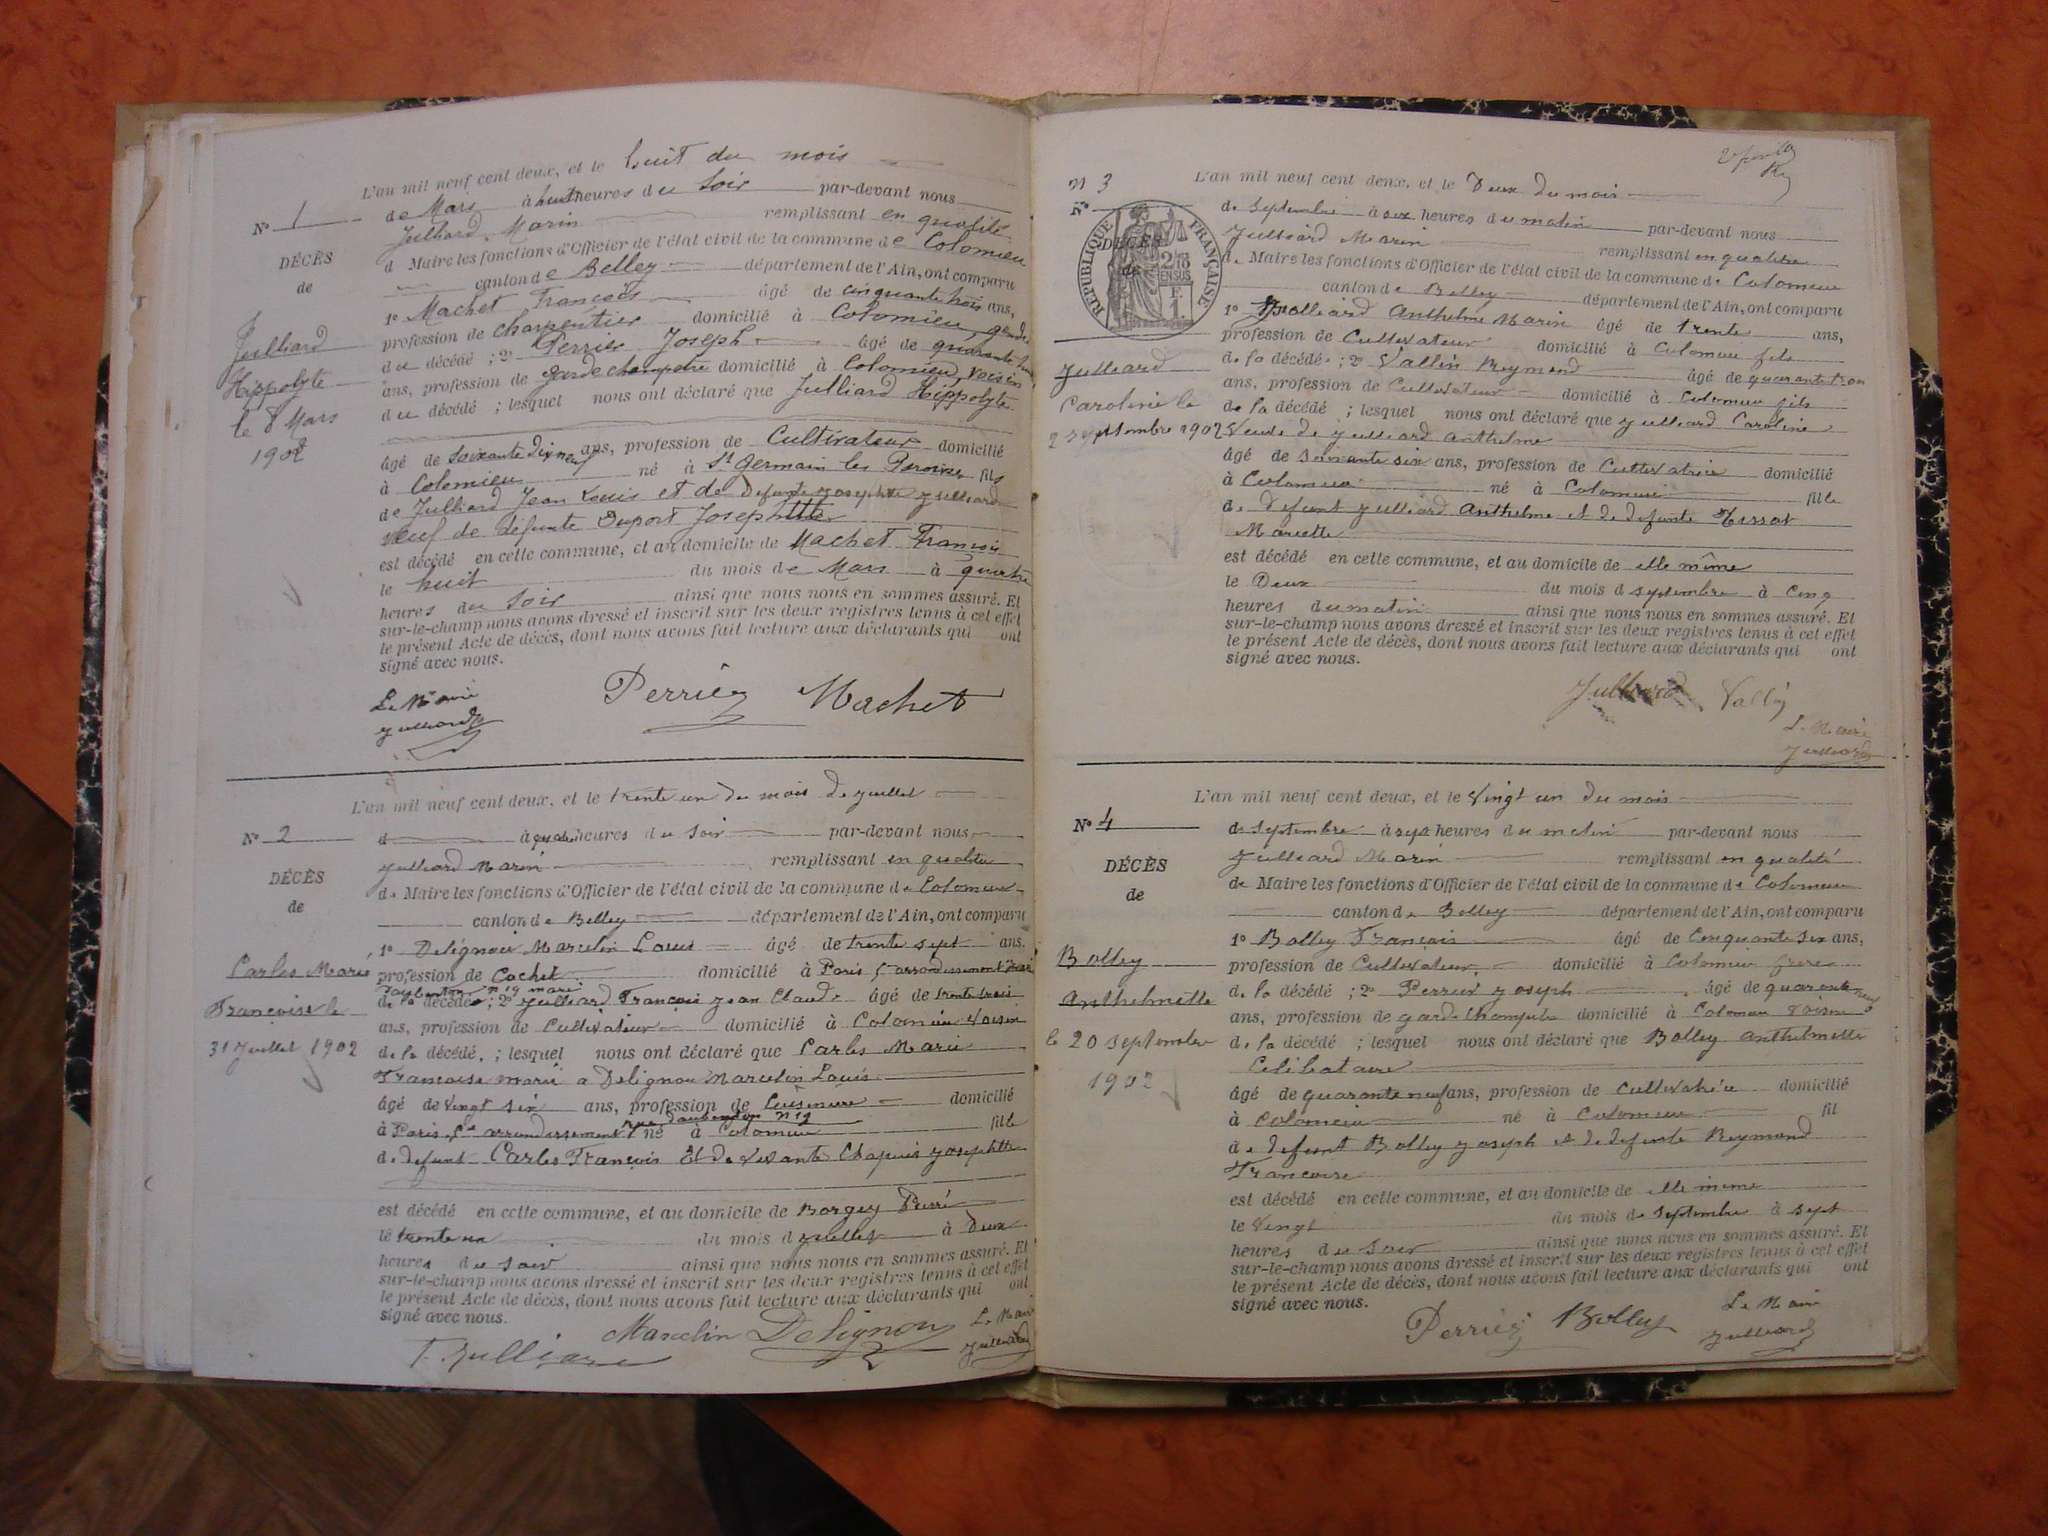 L'an mil neuf cent deux, et le huit du mois
N° 1
de Mars à huit heures du Soir par-devant nous
Julliard Marin remplissant en qualité
DÉCÈS
de
d Maire les fonctions d'Officier de l'état civil de la commune de Colomieu
canton de Belley département de l'Ain, ont comparu
1° Machet François âgé de cinquante trois ans,
profession de charpentier domicilié à Colomieu, gendre
Julliard
Hippolyte
le 8 Mars
1902
du décédé ; 2° Perrier Joseph âgé de quarante
ans, profession de garde champetre domicilié à Colomieu, voisin
du décédé ; lesquel nous ont déclaré que Julliard Hippolyte
âgé de soixante dix neuf ans, profession de Cultivateur domicilié
à Colomieu né à St Germain les Paroisses fils
de Julliard Jean Louis et de Defunte Josephte Julliard
veuf de défunte Duport Josephtte
est décédé en cette commune, et au domicile de Machet François
le huit du mois de Mars à quatre
heures du Soir ainsi que nous nous en sommes assuré. Et
sur-le-champ nous avons dressé et inscrit sur les deux registres tenus à cet effet
le présent Acte de décès, dont nous avons fait lecture aux déclarants qui ont
signé avec nous.
Le Maire
Julliard
Perrier Machet
L'an mil neuf cent deux, et le trente un du mois de juillet
N° 2
d à quatre heures du soir par-devant nous
Julliard Marin remplissant en qualite
DÉCÈS
de
de Maire les fonctions d'Officier de l'état civil de la commune de Colomieu
canton de Belley département de l'Ain, ont comparu
1° Delignou Marcelin Louis âgé de trente sept ans.
Carles Marie
Françoise le
31 Juillet 1902
profession de Cocher domicilié à Paris 5e arrondissement rue
Daubenton n 19 mari
de la décédée ; 2° Julliard François Jean Claude âgé de trente trois
ans, profession de Cultivateur domicilié à Colomieu voisin
de la décédé, ; lesquel nous ont déclaré que Carles Marie
Francoise marié a Delignou Marcelin Louis
âgé de vingt six ans, profession de Cuisiniere domicilié
rue Daubenton n 19
à Paris 5e arrondissement né à Colomieu fille
de defunt Carles François Et de vivante Chapuis Josephtte
est décédé en cette commune, et au domicile de Borgey Pierre
le trente un du mois d juillet à Deux
heures du soir ainsi que nous nous en sommes assuré. Et
sur-le-champ nous avons dressé et inscrit sur les deux registres tenus à cet effet
le présent Acte de décès, dont nous avons fait lecture aux déclarants qui ont
signé avec nous.
F. Julliard Marcelin Delignou Le Maire
Julliard
L'an mil neuf cent deux, et le Deux du mois
n 3
N°
DÉCÈS
de
RÉPUBLIQUE FRANÇAISE
2/10 EN SUS
F. 1.
de Septembre à six heures du matin par-devant nous
Julliard Marin remplissant en qualite
de Maire les fonctions d'Officier de l'état civil de la commune de Colomieu
canton de Belley département de l'Ain, ont comparu
1° Julliard Anthelme Marin âgé de trente ans,
profession de Cultivateur domicilié à Colomieu fils
Julliard
Caroline le
2 septembre 1902
de la décédé ; 2° Vallin Reymond âgé de quarante trois
ans, profession de Cultivateur domicilié à Colomieu fils
de la décédé ; lesquel nous ont déclaré que Julliard Caroline
Veuve de Julliard Anthelme
âgé de soixante six ans, profession de Cultivatrice domicilié
à Colomieu né à Colomieu fille
de Defunt Julliard Anthelme et de defunte
Mariette
est décédé en cette commune, et au domicile de elle même
le Deux du mois d septembre à Cinq
heures du matin ainsi que nous nous en sommes assuré. Et
sur-le-champ nous avons dressé et inscrit sur les deux registres tenus à cet effet
le présent Acte de décès, dont nous avons fait lecture aux déclarants qui ont
signé avec nous.
Julliard Vallin
Le Maire
Julliard
L'an mil neuf cent deux, et le Vingt un du mois
N° 4
de septembre à heures du matin par-devant nous
Julliard Marin remplissant en qualité
DÉCÈS
de
de Maire les fonctions d'Officier de l'état civil de la commune de Colomieu
canton de Belley département de l'Ain, ont comparu
1° Bolley François âgé de Cinquante six ans,
profession de Cultivateur domicilié à Colomieu frere
Bolley
Anthelmette
le 20 septembre
1902
de la décédé ; 2° Perrier Joseph âgé de quarante neuf
ans, profession de garde champetre domicilié à Colomieu voisin
de la décédé ; lesquel nous ont déclaré que Bolley Anthelmette
Célibataire
âgé de quarante neuf ans, profession de cultivatrice domicilié
à Colomieu né à Colomieu fil
de defunt Bolley Joseph et de defunte Reymond
Francoise
est décédé en cette commune, et au domicile de elle meme
le vingt du mois de septembre à sept
heures du soir ainsi que nous nous en sommes assuré. Et
sur-le-champ nous avons dressé et inscrit sur les deux registres tenus à cet effet
le présent Acte de décès, dont nous avons fait lecture aux déclarants qui ont
signé avec nous.
Perrier Bolley Le Maire
Julliard